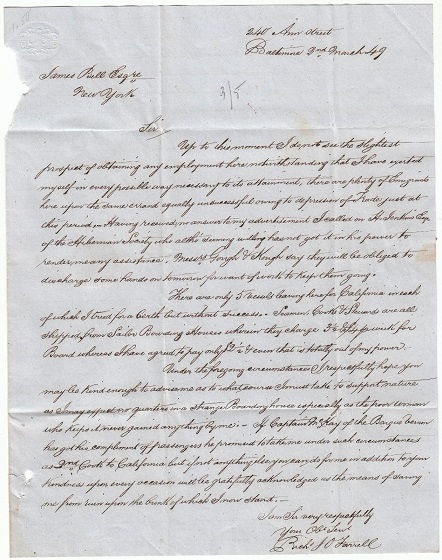 240 Ann Street
Baltimore 2nd March 49
James Ball Esqre
New York
3/5
Sir
Up to this moment I do not see the slightest
prospect of obtaining any employment here notwithstanding that I have exerted
myself in every possible way necessary to its attainment, there are plenty of Emigrants
here upon the same errand equally unsuccessful owing to depression of Trade just at
this period. Having received in answer to my advertisement I called on Mr. Jenkins Esq.
of the Hibernian Society who altho seeming willing has not got it in his power to
render me any assistance. Messrs Gough & Keugh say they will be obliged to
discharge some hands on tomorrow for want of work to keep them going.
There are only 3 vessels leaving here for California in each
of which I tried for a berth but without success. Seamen Cooks & Stewards are all
shipped from Sailor Boarding Houses wherein they charge 3½ & 4 $ week for
Board whereas I have agreed to pay only $2½ & even that is totally out of my power.
Under the foregoing circumstances I respectfully hope you
may be kind enough to advise me as to what course I must take to support nature
as I may expect no quarters in a strange Boarding house especially as the poor woman
who keeps it never gained anything by me. If Captain McKay of the Barque
has got his compliment of passengers he promised to take me under such circumstances
as 2nd Cook to California but if not anything else you can do for me in addition to your
kindness upon every occasion will be gratefully acknowledged as the means of saving
me from ruin upon the brink of which I now stand.
I am Sir very respectfully
Your Obt Servt
Richd O'Farrell